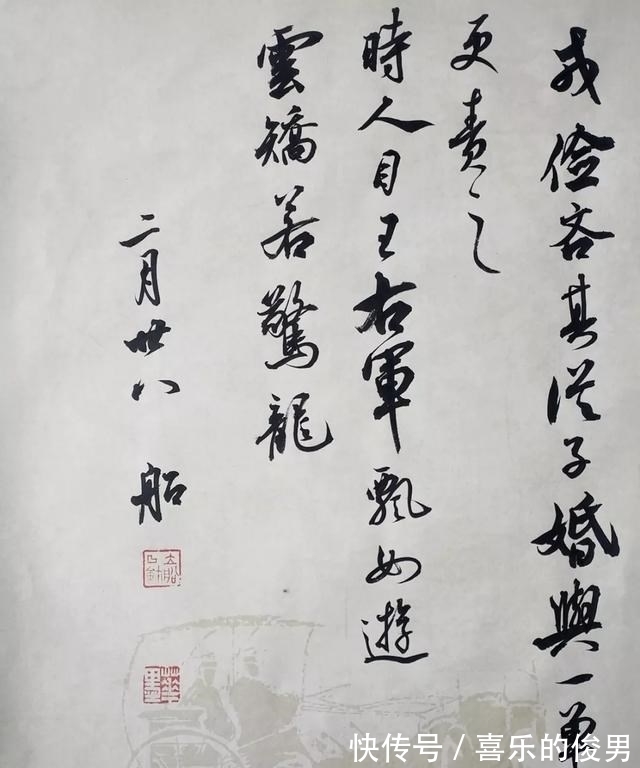 戎儉吝其從子婚與一單
更責之
時人目王右軍飄如遊
雲矯若驚龍
二月廿八 船
快传号/喜乐的俊男